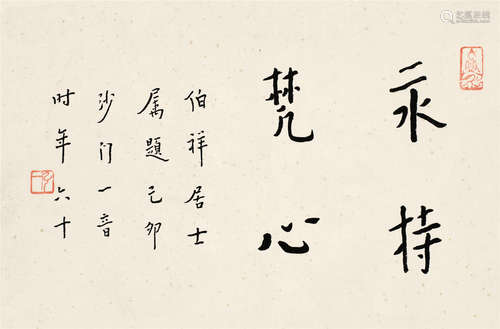 永持
梵心
伯祥居士
属題己卯
沙门一音
时年六十